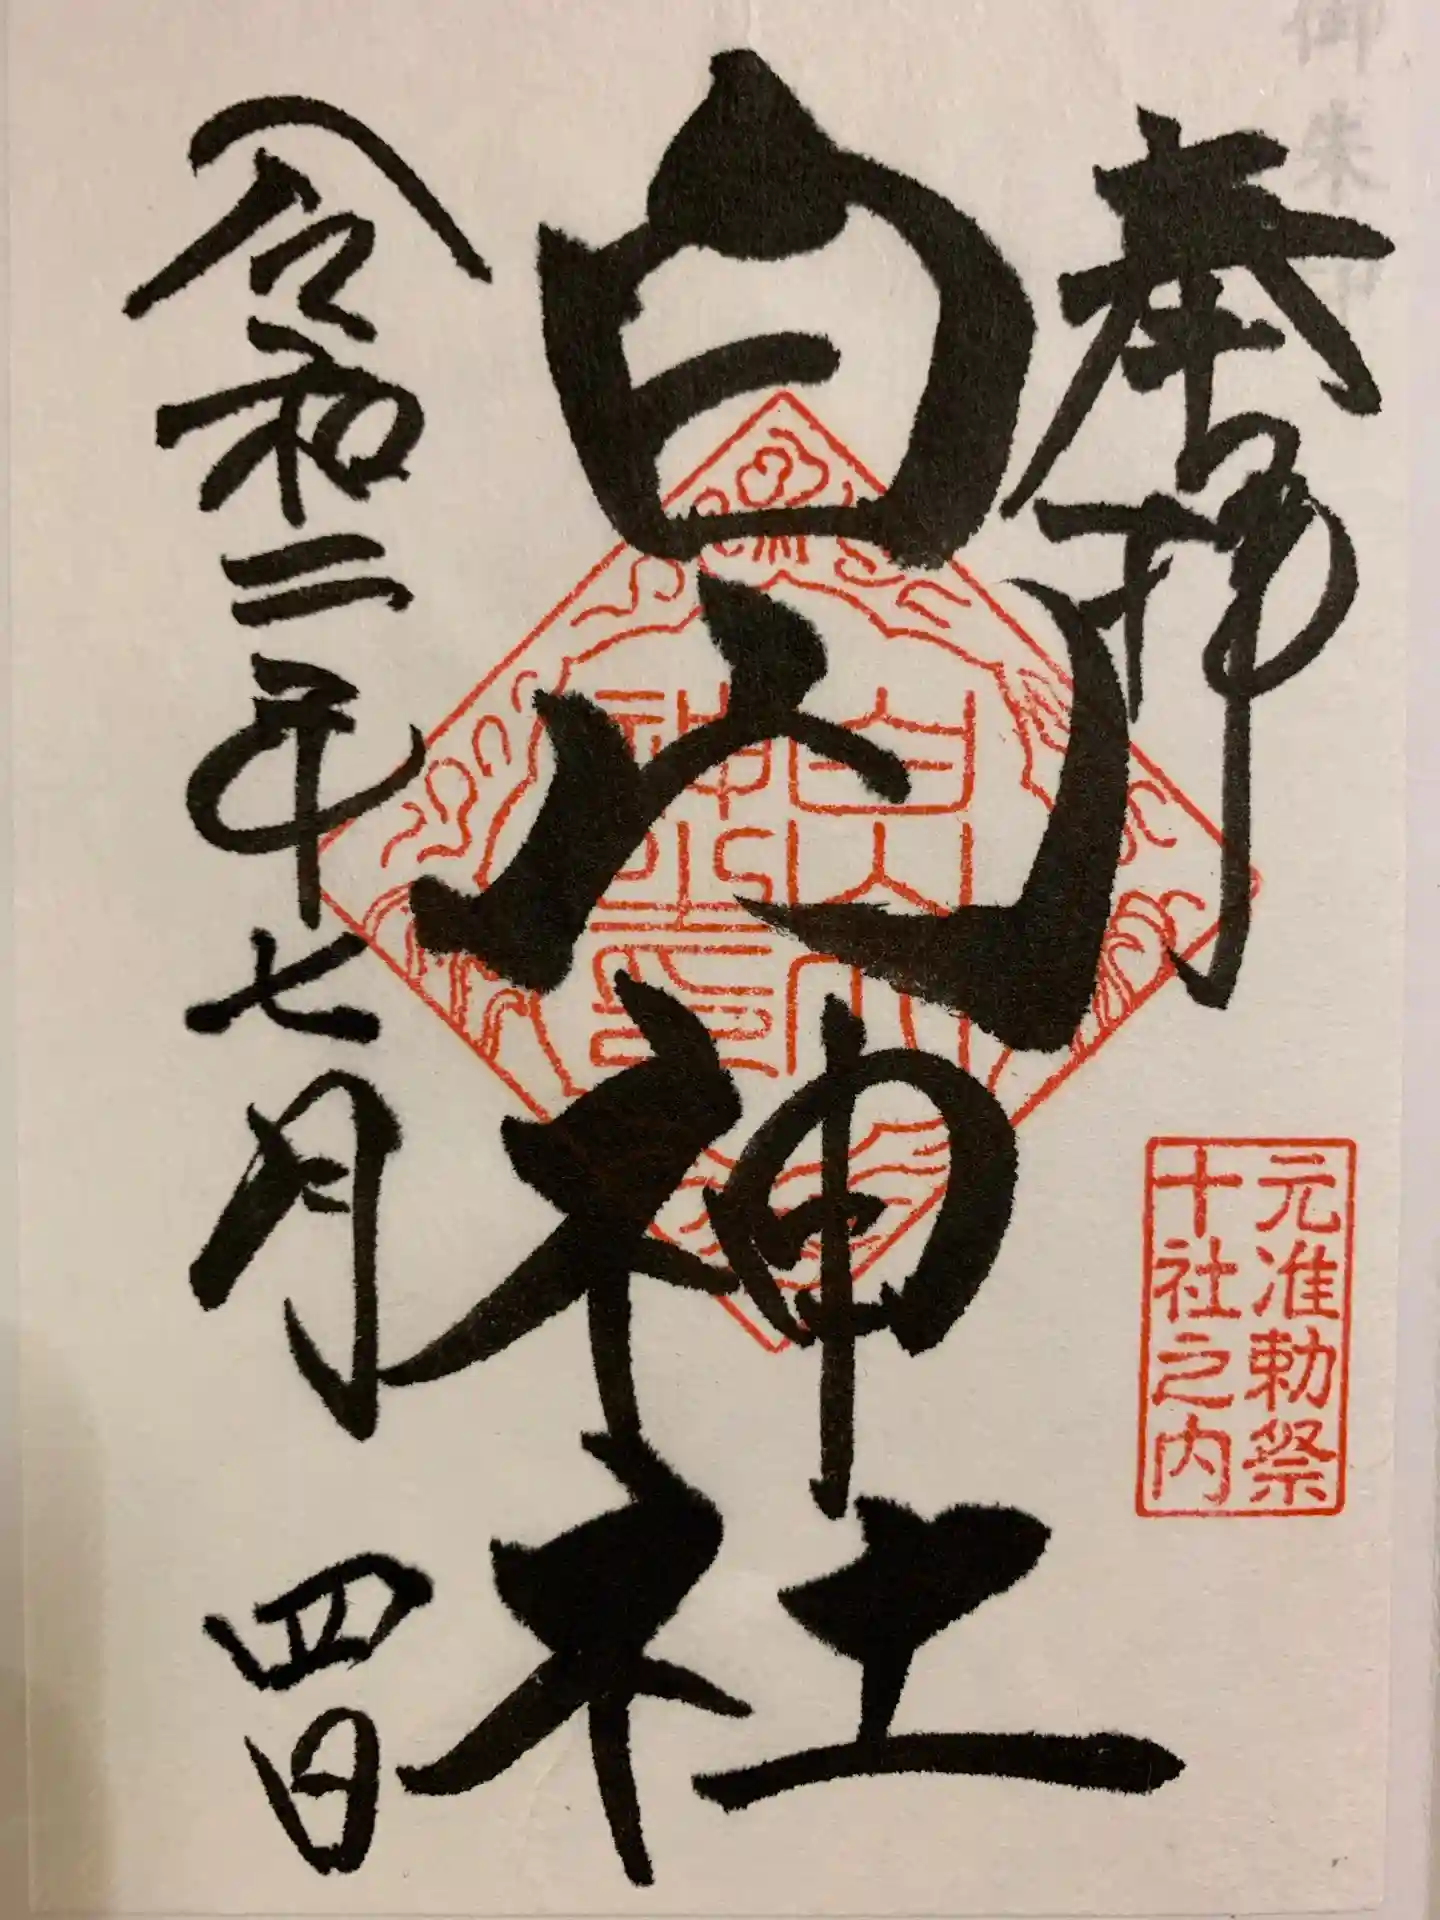 御朱印
奉拝
元准勅祭
十社之内
白山神社
白山
神社
印
令和二年七月四日